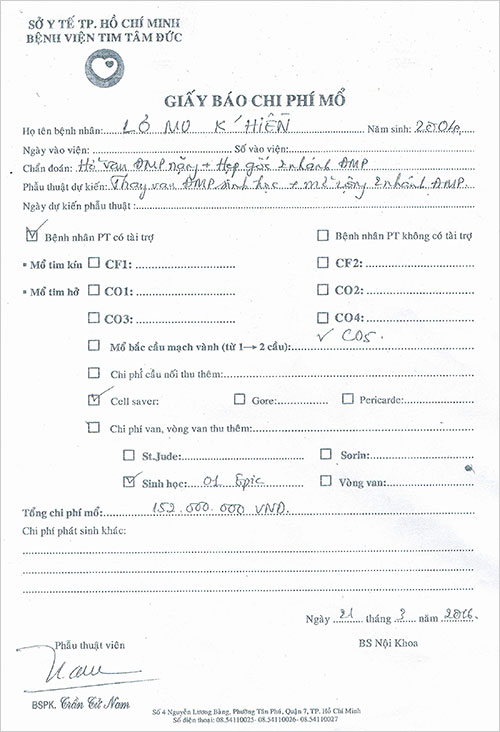 SỞ Y TẾ TP. HỒ CHÍ MINH
BỆNH VIỆN TIM TÂM ĐỨC
GIẤY BÁO CHI PHÍ MỔ
Họ tên bệnh nhân: LÒ MU K' HIỀN Năm sinh: 2004
Ngày vào viện: Số vào viện:
Chẩn đoán: Hở van ĐMP nặng + Hẹp gốc 2 nhánh ĐMP
Phẫu thuật dự kiến: Thay van ĐMP sinh học + mở rộng 2 nhánh ĐMP.
Ngày dự kiến phẫu thuật :
Bệnh nhân PT có tài trợ Bệnh nhân PT không có tài trợ
• Mổ tim kín CF1: CF2:
• Mổ tim hở CO1: CO2:
CO3: CO4:
Mổ bắc cầu mạch vành (từ 1→ 2 cầu): ✓ CO5.
Chi phí cầu nối thu thêm:
Cell saver: Gore: Pericarde:
Chi phí van, vòng van thu thêm:
St.Jude: Sorin:
Sinh học: 01 Epic Vòng van:
Tổng chi phí mổ: 152.000.000 VND.
Chi phí phát sinh khác:
Ngày 21 tháng 3 năm 2016.
Phẫu thuật viên BS Nội Khoa
BSPK. Trần Tử Nam
Số 4 Nguyễn Lương Bằng, Phường Tân Phú, Quận 7, TP. Hồ Chí Minh
Số điện thoại: 08.54110025- 08.54110026- 08.54110027